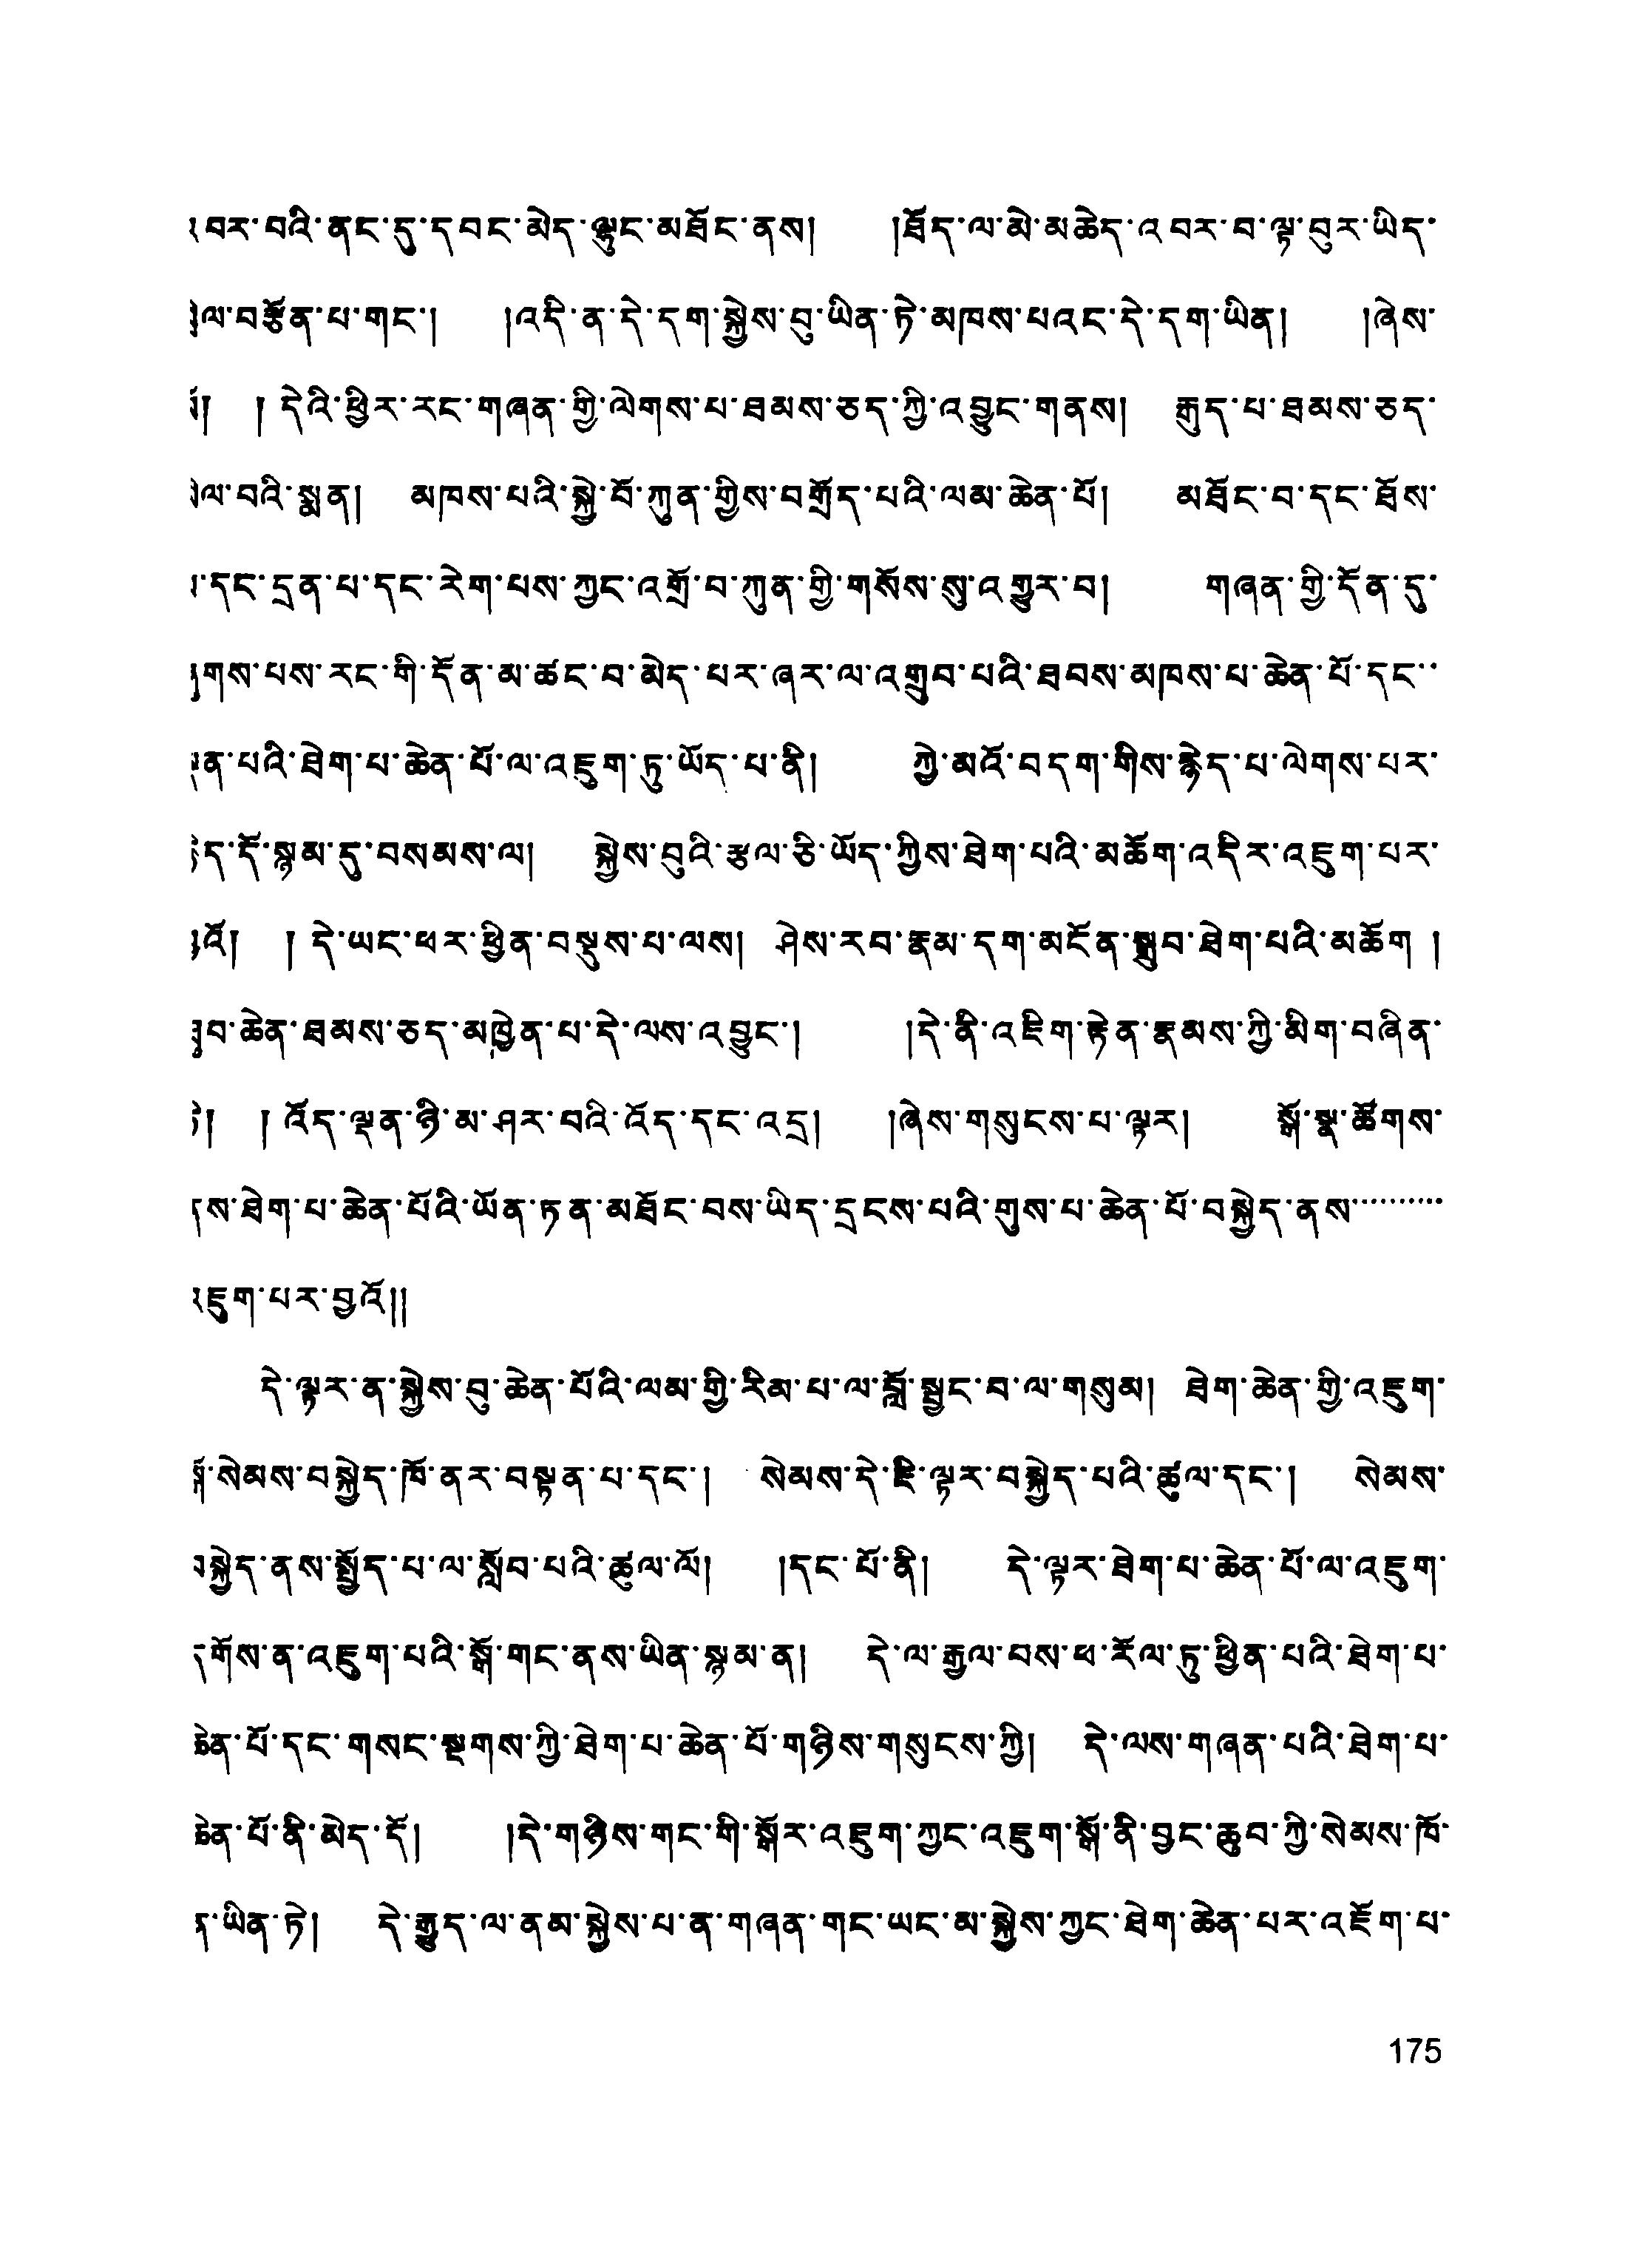 བར་བའི་ནང་དུ་དབང་མེད་ལྷུང་མཐོང་ནས། །ཐོད་ལ་མེ་མཆེད་འབར་བ་ལྟ་བུར་ཡིད་
ལ་བརྩོན་པ་གང་། །འདི་ན་དེ་དག་སྐྱེས་བུ་ཡིན་ཏེ་མཁས་པའང་དེ་དག་ཡིན། །ཞེས་
། །དེའི་ཕྱིར་རང་གཞན་གྱི་ལེགས་པ་ཐམས་ཅད་ཀྱི་འབྱུང་གནས། རྒུད་པ་ཐམས་ཅད་
ལ་བའི་སྨན། མཁས་པའི་སྐྱེ་བོ་ཀུན་གྱིས་བགྲོད་པའི་ལམ་ཆེན་པོ། མཐོང་བ་དང་ཐོས་
་དང་དྲན་པ་དང་རེག་པས་ཀྱང་འགྲོ་བ་ཀུན་གྱི་གསོས་སུ་འགྱུར་བ། གཞན་གྱི་དོན་དུ་
གས་པས་རང་གི་དོན་མ་ཚང་བ་མེད་པར་ཞར་ལ་འགྲུབ་པའི་ཐབས་མཁས་པ་ཆེན་པོ་དང་་
ན་པའི་ཐེག་པ་ཆེན་པོ་ལ་འཇུག་ཏུ་ཡོད་པ་ནི། ཀྱེ་མའོ་བདག་གིས་རྙེད་པ་ལེགས་པར་
ད་དོ་སྙམ་དུ་བསམས་ལ། སྐྱེས་བུའི་རྩལ་ཅི་ཡོད་ཀྱིས་ཐེག་པའི་མཆོག་འདིར་འཇུག་པར་
འོ། །དེ་ཡང་ཕར་ཕྱིན་བསྡུས་པ་ལས། ཤེས་རབ་རྣམ་དག་མངོན་སྒྲུབ་ཐེག་པའི་མཆོག །
བ་ཆེན་ཐམས་ཅད་མཁྱེན་པ་དེ་ལས་འབྱུང་། །དེ་ནི་འཇིག་རྟེན་རྣམས་ཀྱི་མིག་བཞིན་
། །འོད་ལྡན་ཉི་མ་ཤར་བའི་འོད་དང་འདྲ། །ཞེས་གསུངས་པ་ལྟར། སྒོ་སྣ་ཚོགས་
ས་ཐེག་པ་ཆེན་པོའི་ཡོན་ཏན་མཐོང་བས་ཡིད་དྲངས་པའི་གུས་པ་ཆེན་པོ་བསྐྱེད་ནས་་་་་་་་་་
ཇུག་པར་བྱའོ།།
དེ་ལྟར་ན་སྐྱེས་བུ་ཆེན་པོའི་ལམ་གྱི་རིམ་པ་ལ་བློ་སྦྱང་བ་ལ་གསུམ། ཐེག་ཆེན་གྱི་འཇུག་
སྒོ་སེམས་བསྐྱེད་ཁོ་ནར་བསྟན་པ་དང་། སེམས་དེ་ཇི་ལྟར་བསྐྱེད་པའི་ཚུལ་དང་། སེམས་
བསྐྱེད་ནས་སྤྱོད་པ་ལ་སློབ་པའི་ཚུལ་ལོ། །དང་པོ་ནི། དེ་ལྟར་ཐེག་པ་ཆེན་པོ་ལ་འཇུག་
དགོས་ན་འཇུག་པའི་སྒོ་གང་ནས་ཡིན་སྙམ་ན། དེ་ལ་རྒྱལ་བས་ཕ་རོལ་ཏུ་ཕྱིན་པའི་ཐེག་པ་
ཆེན་པོ་དང་གསང་སྔགས་ཀྱི་ཐེག་པ་ཆེན་པོ་གཉིས་གསུངས་ཀྱི། དེ་ལས་གཞན་པའི་ཐེག་པ་
ཆེན་པོ་ནི་མེད་དོ། །དེ་གཉིས་གང་གི་སྒོར་འཇུག་ཀྱང་འཇུག་སྒོ་ནི་བྱང་ཆུབ་ཀྱི་སེམས་ཁོ་
ན་ཡིན་ཏེ། དེ་རྒྱུད་ལ་ནམ་སྐྱེས་པ་ན་གཞན་གང་ཡང་མ་སྐྱེས་ཀྱང་ཐེག་ཆེན་པར་འཇོག་པ་
175